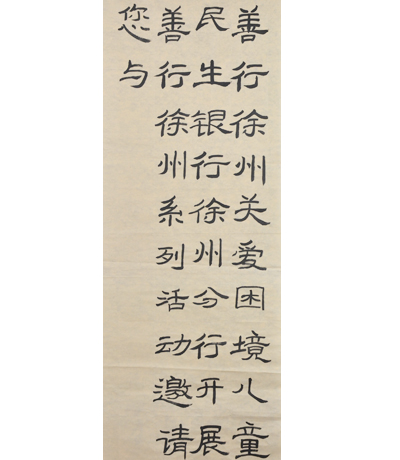 善行徐州关爱困境儿童
民生银行徐州分行开展
善行徐州系列活动邀请
您与